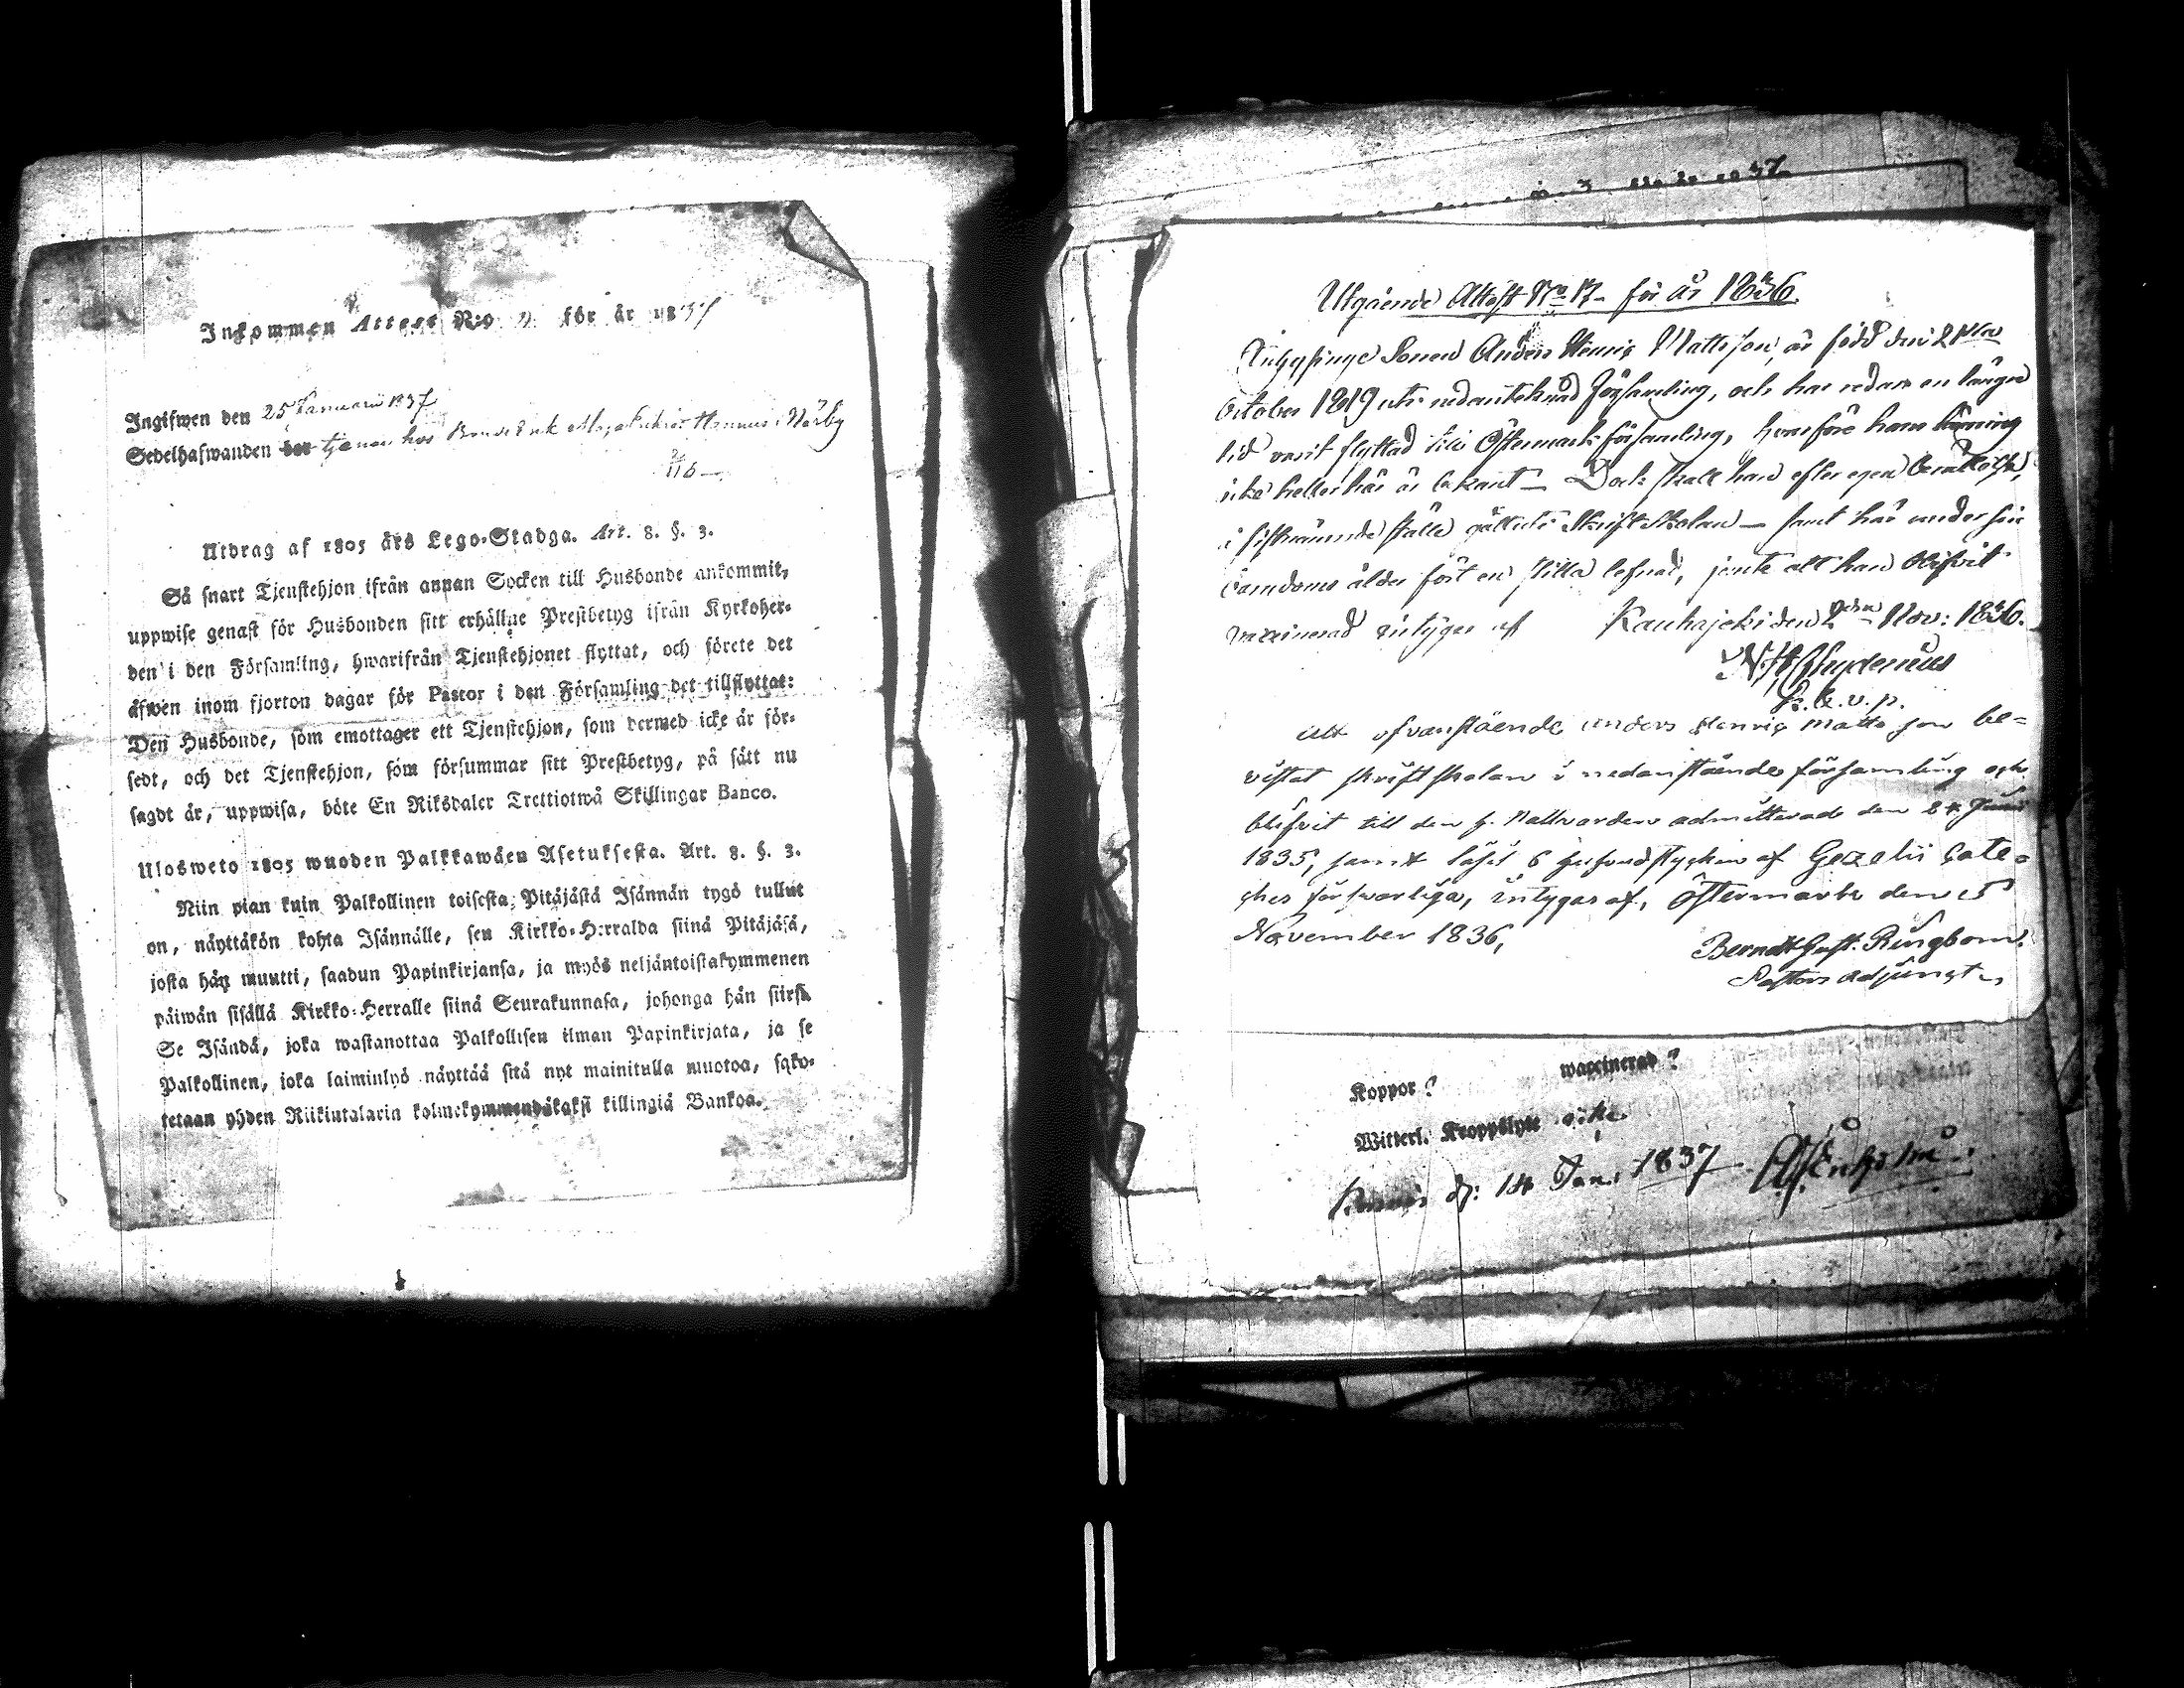 Inkommen Attest N:o 2 för år 1837
Ingifwen den 25 Januarii 1837
Sedelhafwanden tjenar hos Bonde Närby
116
Utdrag af 1805 års Lego-Stadga. Art. 8. §. 3.
Så snart Tjenstehjon ifrån annan Socken till Husbonde ankommit,
uppwise genast för Husbonden sitt erhållne Prestbetyg ifrån Kyrkoher-
den i den Församling, hwarifrån Tjenstehjonet flyttat, och förete det
äfwen inom fjorton dagar för Pastor i den Församling det tillflyttat:
Den Husbonde, som emottager ett Tjenstehjon, som dermed icke är för-
sedt, och det Tjenstehjon, som försummar sitt Prestbetyg, på sätt nu
sagdt är, uppwisa, böte En Riksdaler Trettiotwå Skillingar Banco.
Ulosweto 1805 wuoden Palkkawäen Asetuksesta. Art. 8. §. 3.
Niin pian kuin Palkollinen toisesta Pitäjästä Isännän tygö tullut
on, näyttäkön kohta Isännälle, sen Kirkko-Herralda siinä Pitäjäsä,
josta hän muutti, saadun Papinkirjansa, ja myös neljäntoistakymmenen
päiwän sisällä Kirkko-Herralle siinä Seurakunnasa, johonga hän siirsi
Se Isändä, joka wastanottaa Palkollisen ilman Papinkirjata, ja se
Palkollinen, joka laiminlyö näyttää sitä nyt mainitulla muotoa, sako-
tetaan yhden Riikintalarin kolmekymmendäkaksi killingiä Bankoa.
Utgående Attest No 17 för år 1836.
Inhysinge Sonen Anders Henric Mattsson, är född den 21
October 1819 uti nedanteknad Församling, och har redan en längre
tid varit flyttad till Östermark församling, hvarföre hans
icke heller här är bekant – Dock skall han efter egen berättelse,
i sistnämnde ställe gått uti Skriftskolan – samt här under sin
barndoms ålder fört en stilla lefnad, jemte att han blifvit
vaccinerad intygar af Kauhajoki den 2 Nov: 1836.
Chydenius
att ofvanstående anders Henric Matts son be-
vistat skriftskolan i nedanstående församling och
blifvit till den h. Nattvarden admitterad den 24 Juni
1835, samt läsit 6 hufvudstycken af Gezelii Cate-
ches försvarliga, intygas af, Östermark den 15
November 1836,
Berndt Gust. Ringbom.
Pastors adjunct
Koppor? waccinerad?
Witterl. Kroppslyte
14 Jan: 1837